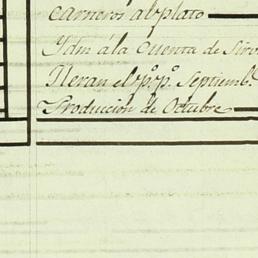 carneros al plato
Ydm á la Cuenta de Siro
Neran el pº. pº. Septiemb.
Producción de Octubre